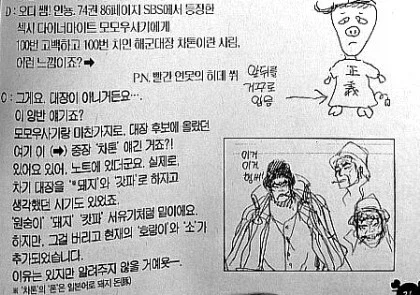 D : 오다 쌤! 안뇽. 74권 86페이지 SBS에서 등장한
섹시 다이너마이트 모모우사기에게
100번 고백하고 100번 차인 해군대장 차톤이란 사람,
어떤 느낌이죠? ➡
P.N. 빨간 연못의 히데 쒸
O : 그게요, 대장이 아니거든요….
이 양반 얘기죠?
모모우사기랑 마찬가지로, 대장 후보에 올랐던
여기 이 (➡) 중장 '차톤' 얘긴 거죠?!
있어요 있어. 노트에 있더군요. 실제로.
차기 대장을 '*돼지'와 '캇파'로 하자고
생각했던 시기도 있었죠.
'원숭이' '돼지' '캇파' 서유기처럼 말이에요.
하지만, 그걸 버리고 현재의 '호랑이'와 '소'가
추가되었습니다.
이유는 있지만 알려주지 않을 거예욧―.
※ '차톤'의 '톤'은 일본어로 돼지 돈(豚)
正
義
앞뒤를
거꾸로
입음
이거
이거